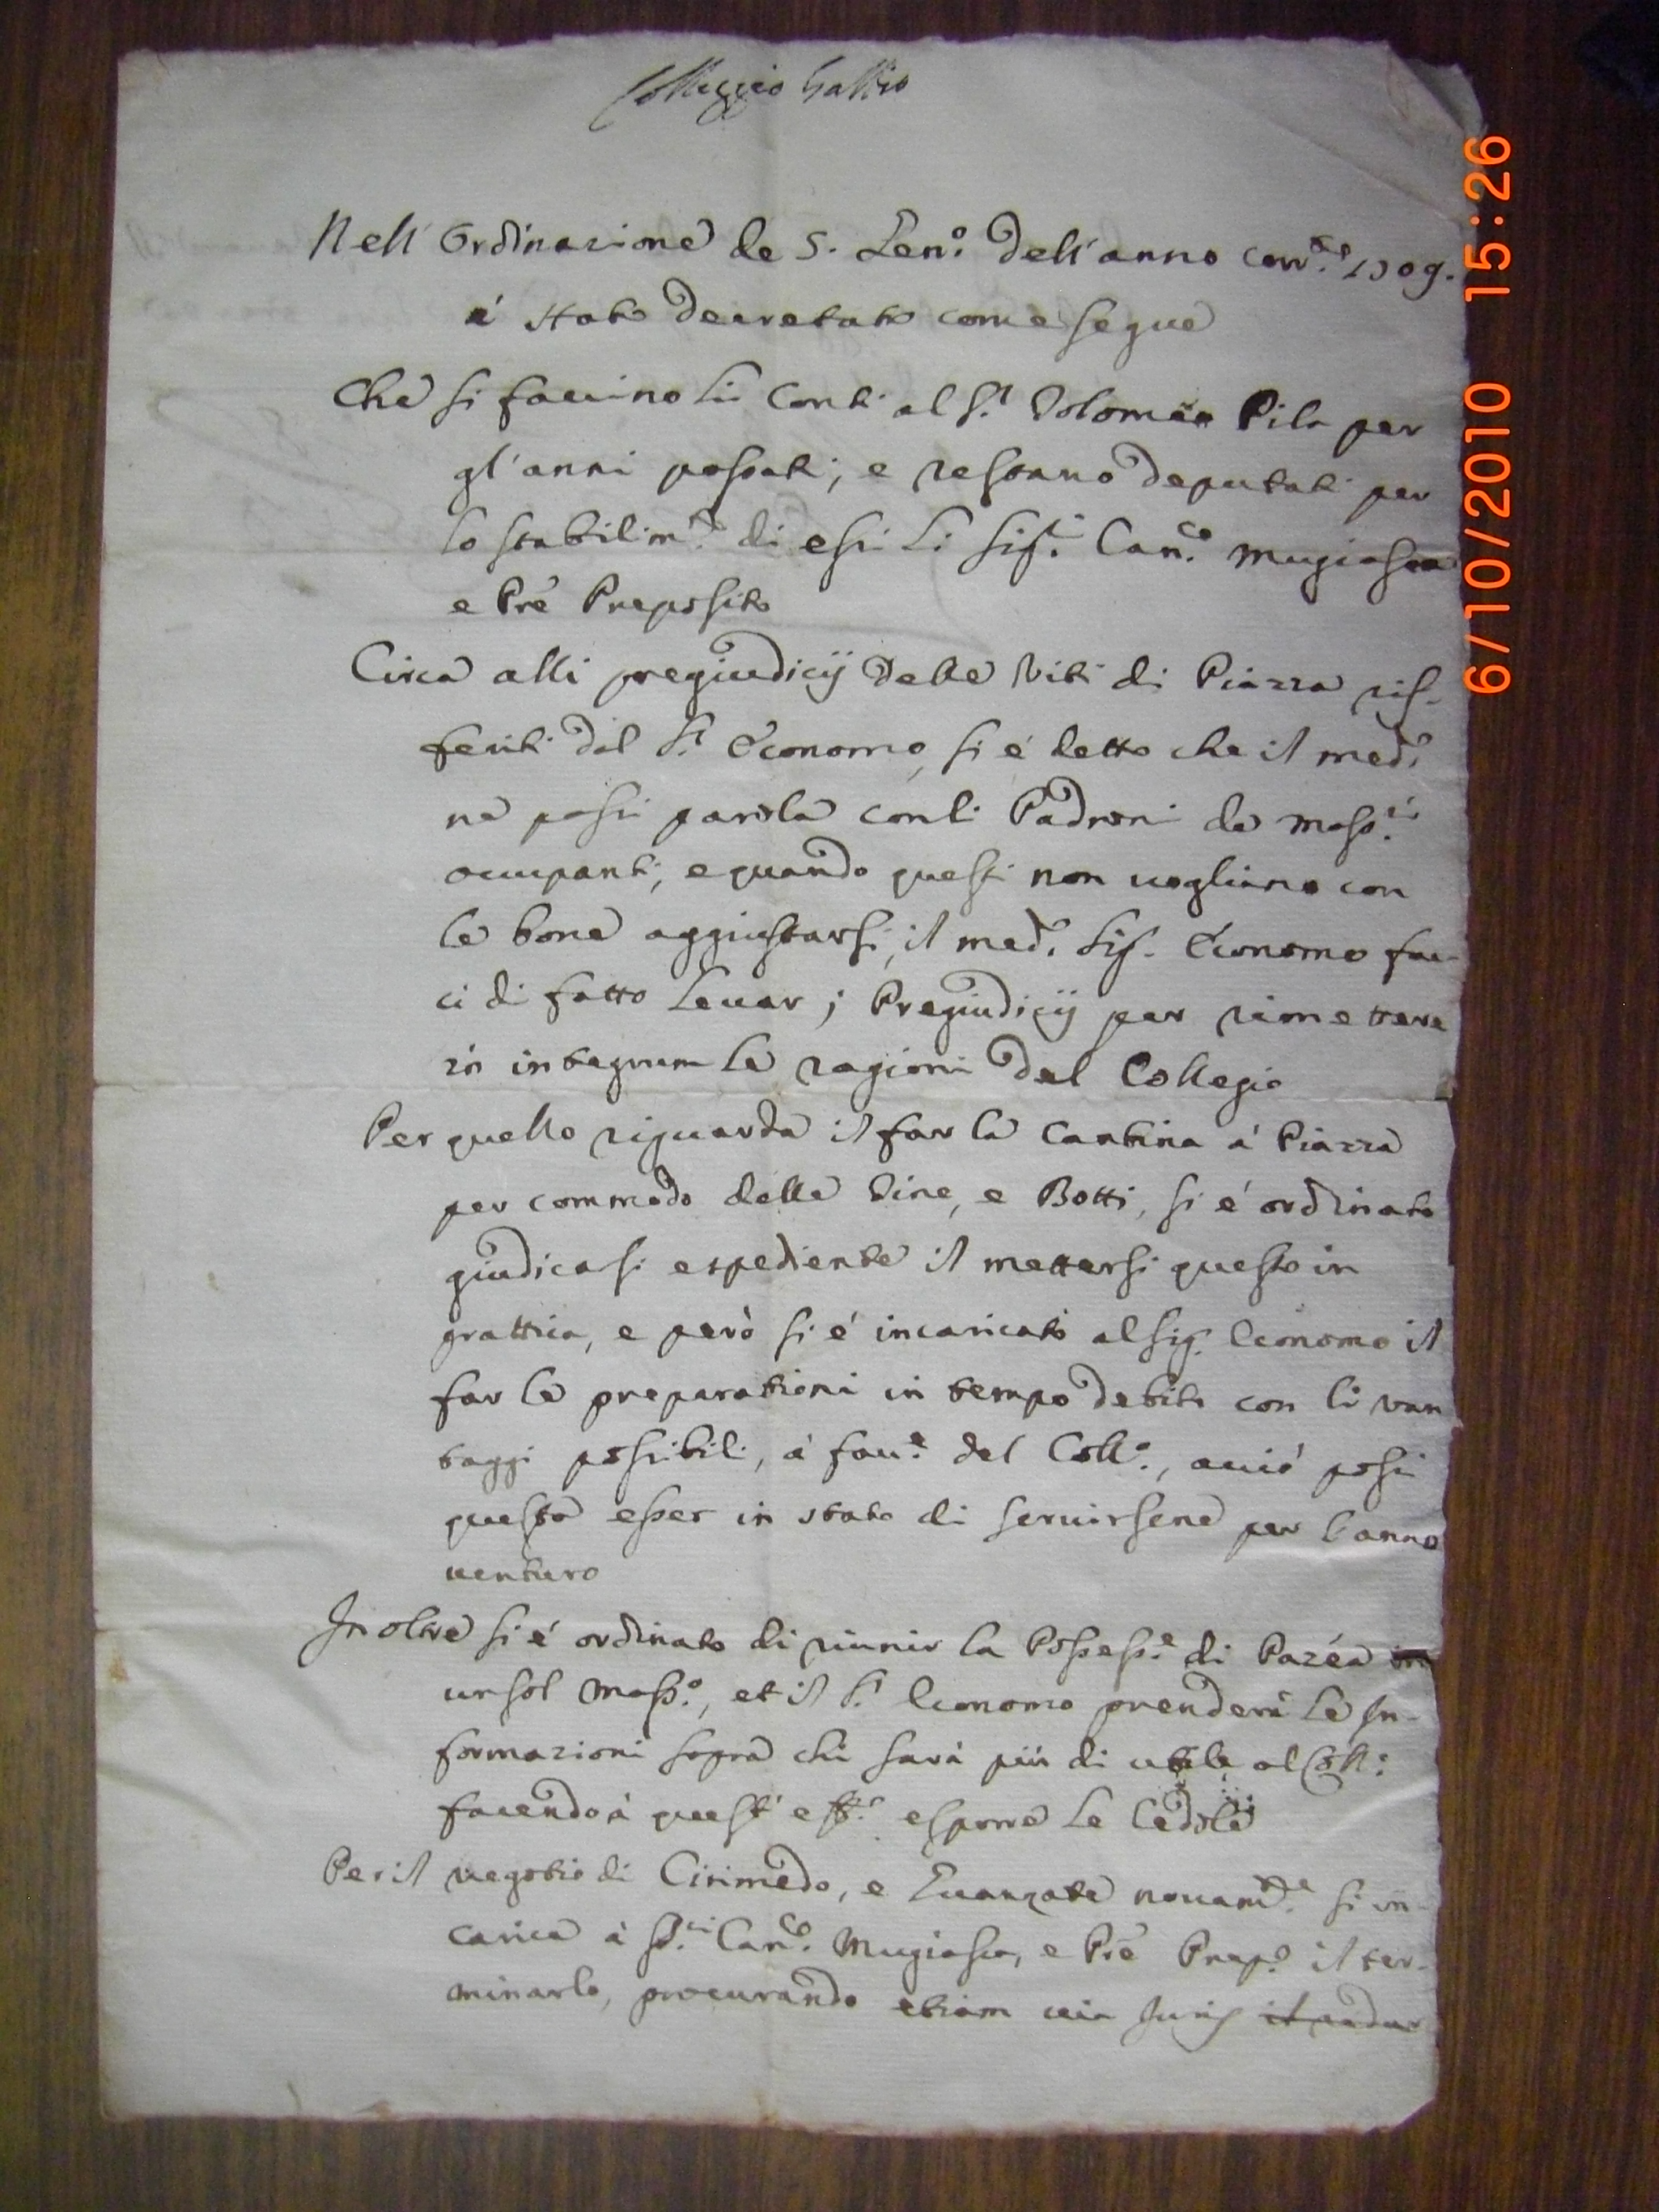 Colleggio Gallio
Nell' Ordinazione de 5. Gen.o dell' anno corr.te 1709.
é stato decretato come segue
Che si faccino li Conti al S.r Tolomeo Pila per
gl' anni passati, e restano deputati per
lo stabilim.to di essi li Sig.ri Can.co Mugiasca
e Prē Preposito
Circa alli pregiudicij delle Viti di Piazza rif-
feriti dal S.r Economo, si é detto che il med.o
ne passi parola con li Padroni de mass.ri
occupanti, e quando questi non vogliano con
le bone aggiustarsi, il med.o Sig. Economo fac-
ci di fatto levar i Pregiudicij per rimettere
in integrum le ragioni del Collegio
Per quello riguarda il far la Cantina á Piazza
per commodo delle Tine, e Botti, si é ordinato
giudicasi espediente il mettersi questo in
prattica, e peró si é incaricato al Sig. Economo il
far le preparationi in tempo debito con li van
taggi possibili, á fav.e del Coll.o, acció possi
questa esser in stato di servirsene per l'anno
venturo
In oltre si é ordinato di riunir la Possess.e di Pazéa
un sol Mass.o, et il S.r Economo prenderá le In-
formazioni sopra chi sará piú di utile al Coll.o
facendo á quest' eff.o esporre le Cedole
Per il negotio di Cirimedo, e novam.te si in-
carica á SS.ri Can.co Mugiasca, e Prē Prep.o il ter-
minarlo, procurando etiam via Juris
6/10/2010 15:26